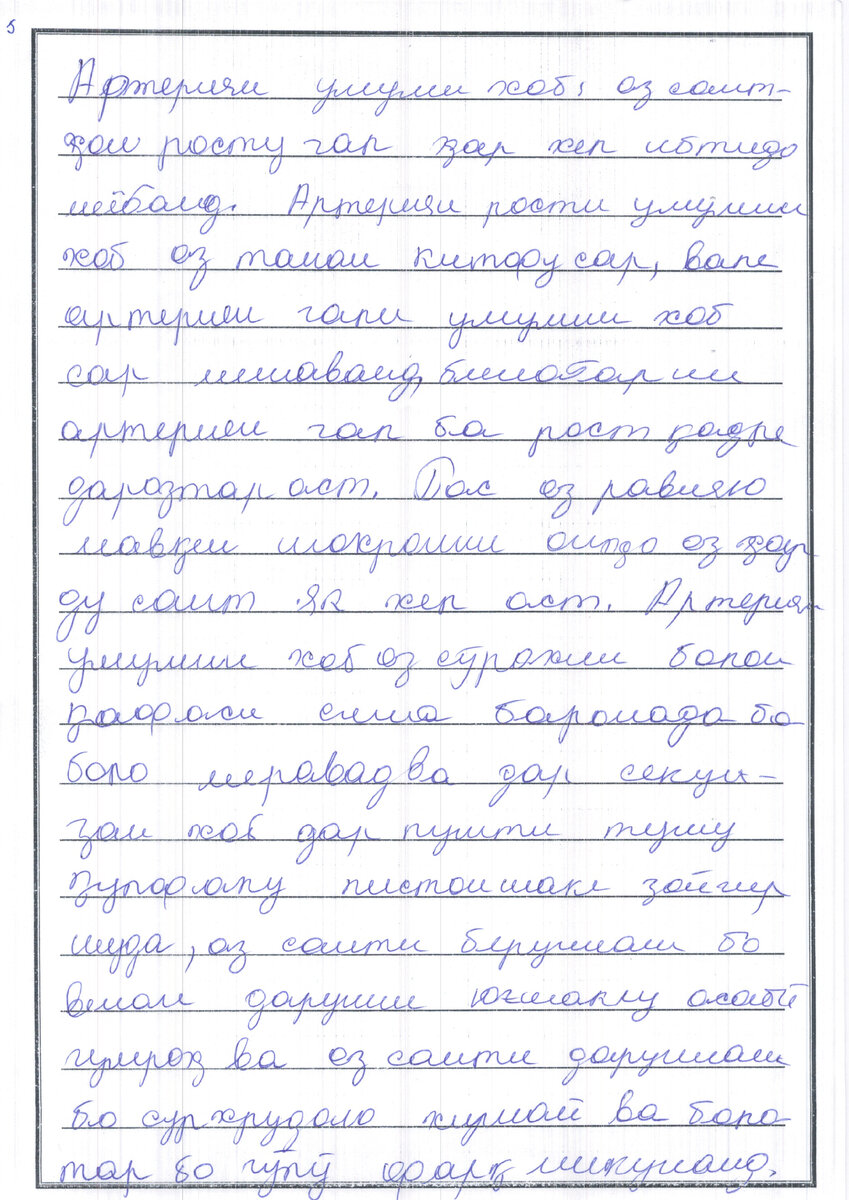 5
Артерияи умуми хоб, аз самт-
ҳои росту чап ҳар хел ибтидо
меёбанд. Артерияи рости умумии
хоб аз танаи китфу сар, вале
артерияи чапи умумии хоб
сар мешаванд, бинобар ин
артерияи чап ба рост қадре
дарозтар аст. Пас аз равияю
мавқеи шохронии онҳо аз ҳар
ду самт як хел аст. Артерияи
умумии хоб аз сӯрохии болои
қафаси сина баромада ба
боло меравад ва дар секун-
ҷаи хоб дар пушти
пистоншакл ҷойгир
шуда, аз самти берунаш бо
венаи дарунии юғшаклу асаби
гумроҳ ва аз самти дарунаш
бо сурхрӯдаю хирной ва боло
тар бо гулӯ фарқ мекунанд.